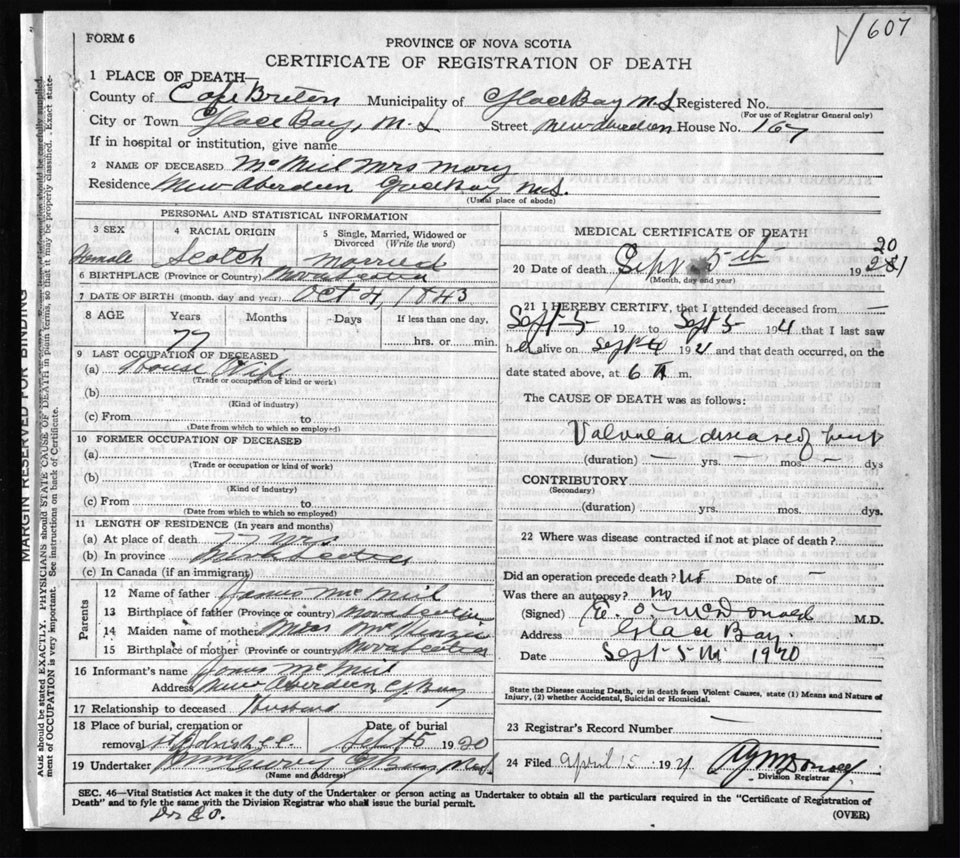 607
FORM 6
PROVINCE OF NOVA SCOTIA
CERTIFICATE OF REGISTRATION OF DEATH
1 PLACE OF DEATH—
County of Cape Breton Municipality of Glace Bay N.S. Registered No.
(For use of Registrar General only)
City or Town Glace Bay, N.S Street New Aberdeen House No. 167
If in hospital or institution, give name
2 NAME OF DECEASED McNeil Mrs Mary
Residence New Aberdeen Glace Bay N.S.
(Usual place of abode)
PERSONAL AND STATISTICAL INFORMATION
3 SEX 4 RACIAL ORIGIN 5 Single, Married, Widowed or Divorced (Write the word)
Female Scotch Married
6 BIRTHPLACE (Province or Country) Nova Scotia
7 DATE OF BIRTH (month, day and year) Oct 4, 1843
8 AGE Years Months Days If less than one day,
77 hrs. or min.
9 LAST OCCUPATION OF DECEASED
(a) House Wife
(Trade or occupation of kind or work)
(b)
(Kind of industry)
(c) From to
(Date from which to which so employed)
10 FORMER OCCUPATION OF DECEASED
(a)
(Trade or occupation or kind of work)
(b)
(Kind of industry)
(c) From to
(Date from which to which so employed)
11 LENGTH OF RESIDENCE (In years and months)
(a) At place of death 77 yrs
(b) In province Nova Scotia
(c) In Canada (if an immigrant)
Parents
12 Name of father James McNeil
13 Birthplace of father (Province or country) Nova Scotia
14 Maiden name of mother Miss McKenzie
15 Birthplace of mother (Province or country) Nova Scotia
16 Informant's name James McNeil
Address New Aberdeen, G Bay
17 Relationship to deceased Husband
18 Place of burial, cremation or Date of burial
removal Sept 5 1920
19 Undertaker
(Name and Address)
MEDICAL CERTIFICATE OF DEATH
20 Date of death Sept 5th 1920
(Month, day and year)
21 I HEREBY CERTIFY, that I attended deceased from
Sept 5 19 to Sept 5 1921 that I last saw
her alive on Sept 4 1921 and that death occurred, on the
date stated above, at 6 A m.
The CAUSE OF DEATH was as follows:
Valvular disease of heart
(duration) — yrs. — mos. — dys
CONTRIBUTORY
(Secondary)
(duration) yrs. mos. dys.
22 Where was disease contracted if not at place of death?
Did an operation precede death? No Date of —
Was there an autopsy? No
(Signed) E. O. McDonald M.D.
Address Glace Bay.
Date Sept 5th 1920
State the Disease causing Death, or in death from Violent Causes, state (1) Means and Nature of
Injury, (2) whether Accidental, Suicidal or Homicidal.
23 Registrar's Record Number —
24 Filed April 15 1921
Division Registrar
SEC. 46—Vital Statistics Act makes it the duty of the Undertaker or person acting as Undertaker to obtain all the particulars required in the "Certificate of Registration of
Death" and to fyle the same with the Division Registrar who shall issue the burial permit.
(OVER)
MARGIN RESERVED FOR BINDING
AGE should be stated EXACTLY. PHYSICIANS should STATE CAUSE OF DEATH in plain terms, so that it may be properly classified. Exact statement of OCCUPATION is very important. See instructions on back of Certificate.